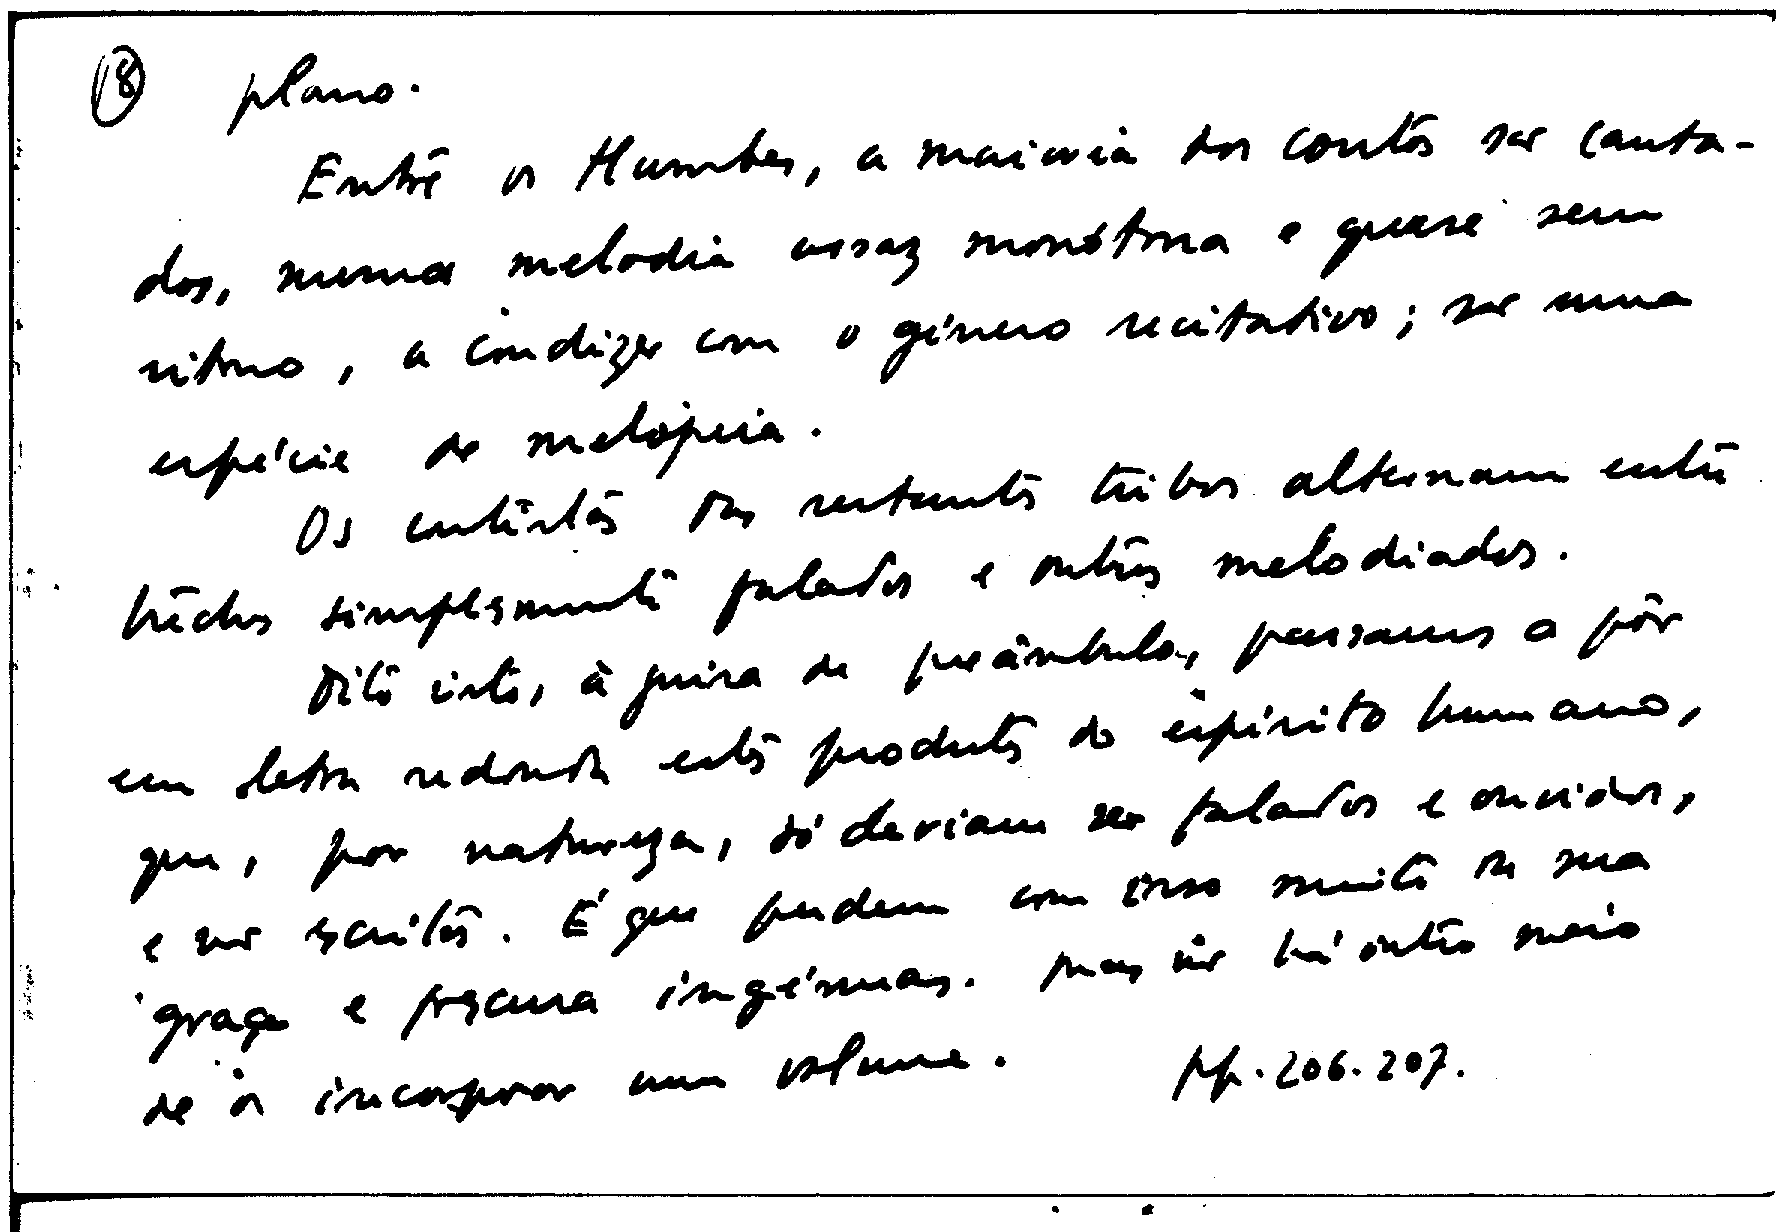 18 plano.
Entre os Humbes, a maioria dos contos são canta-
dos, numa melodia assaz monótona e quase sem
ritmo, a condizer com o género recitativo; são uma
espécie de melopeia.
Os contistas das restantes tribos alternam entre
trechos simplesmente falados e outros melodiados.
Dito isto, à guisa de preâmbulo, passamos a pôr
em letra redonda estes produtos do espírito humano,
que, por natureza, só deviam ser falados e ouvidos,
e não escritos. É que perdem com isso muito da sua
graça e frescura ingénuas. Mas não há outro meio
de os incorporar num volume. pp. 206-207.